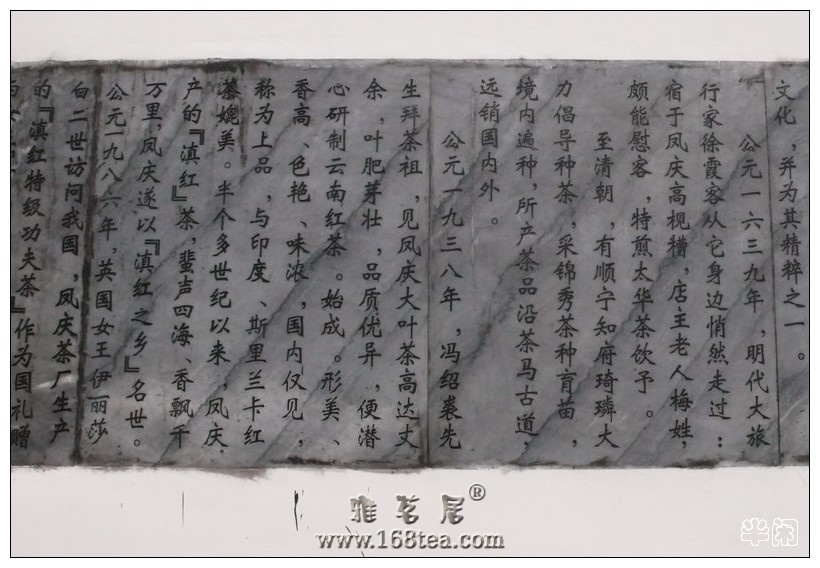 文化，并为其精粹之一。
公元一六三九年，明代大旅
行家徐霞客从它身边悄然走过：
宿于凤庆高枧槽，店主老人梅姓，
颇能慰客，特煎太华茶饮予。
至清朝，有顺宁知府琦璘大
力倡导种茶，采锦秀茶种育苗，
境内遍种，所产茶品沿茶马古道，
远销国内外。
公元一九三八年，冯绍裘先
生拜茶祖，见凤庆大叶茶高达丈
余，叶肥芽壮，品质优异，便潜
心研制云南红茶。始成。形美、
香高、色艳、味浓，国内仅见，
称为上品，与印度、斯里兰卡红
茶媲美。半个多世纪以来，凤庆
产的『滇红』茶，蜚声四海、香飘千
万里，凤庆遂以『滇红之乡』名世。
公元一九八六年，英国女王伊丽莎
白二世访问我国，凤庆茶厂生产
的『滇红特级功夫茶』作为国礼赠
雅茗居®
www.168tea.com
半闲